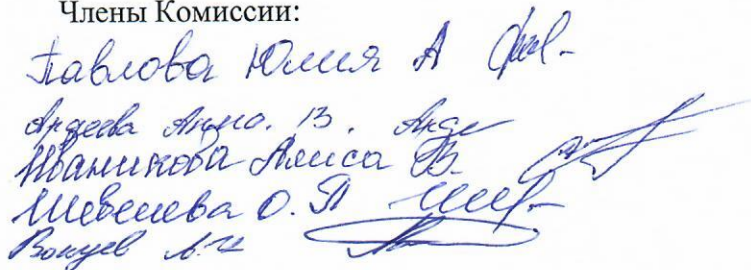 Члены Комиссии:
Павлова Юлия А
Ардеева Анна. В.
Иваникова Алиса В.
Шевелева О. П
Вокуев А. И